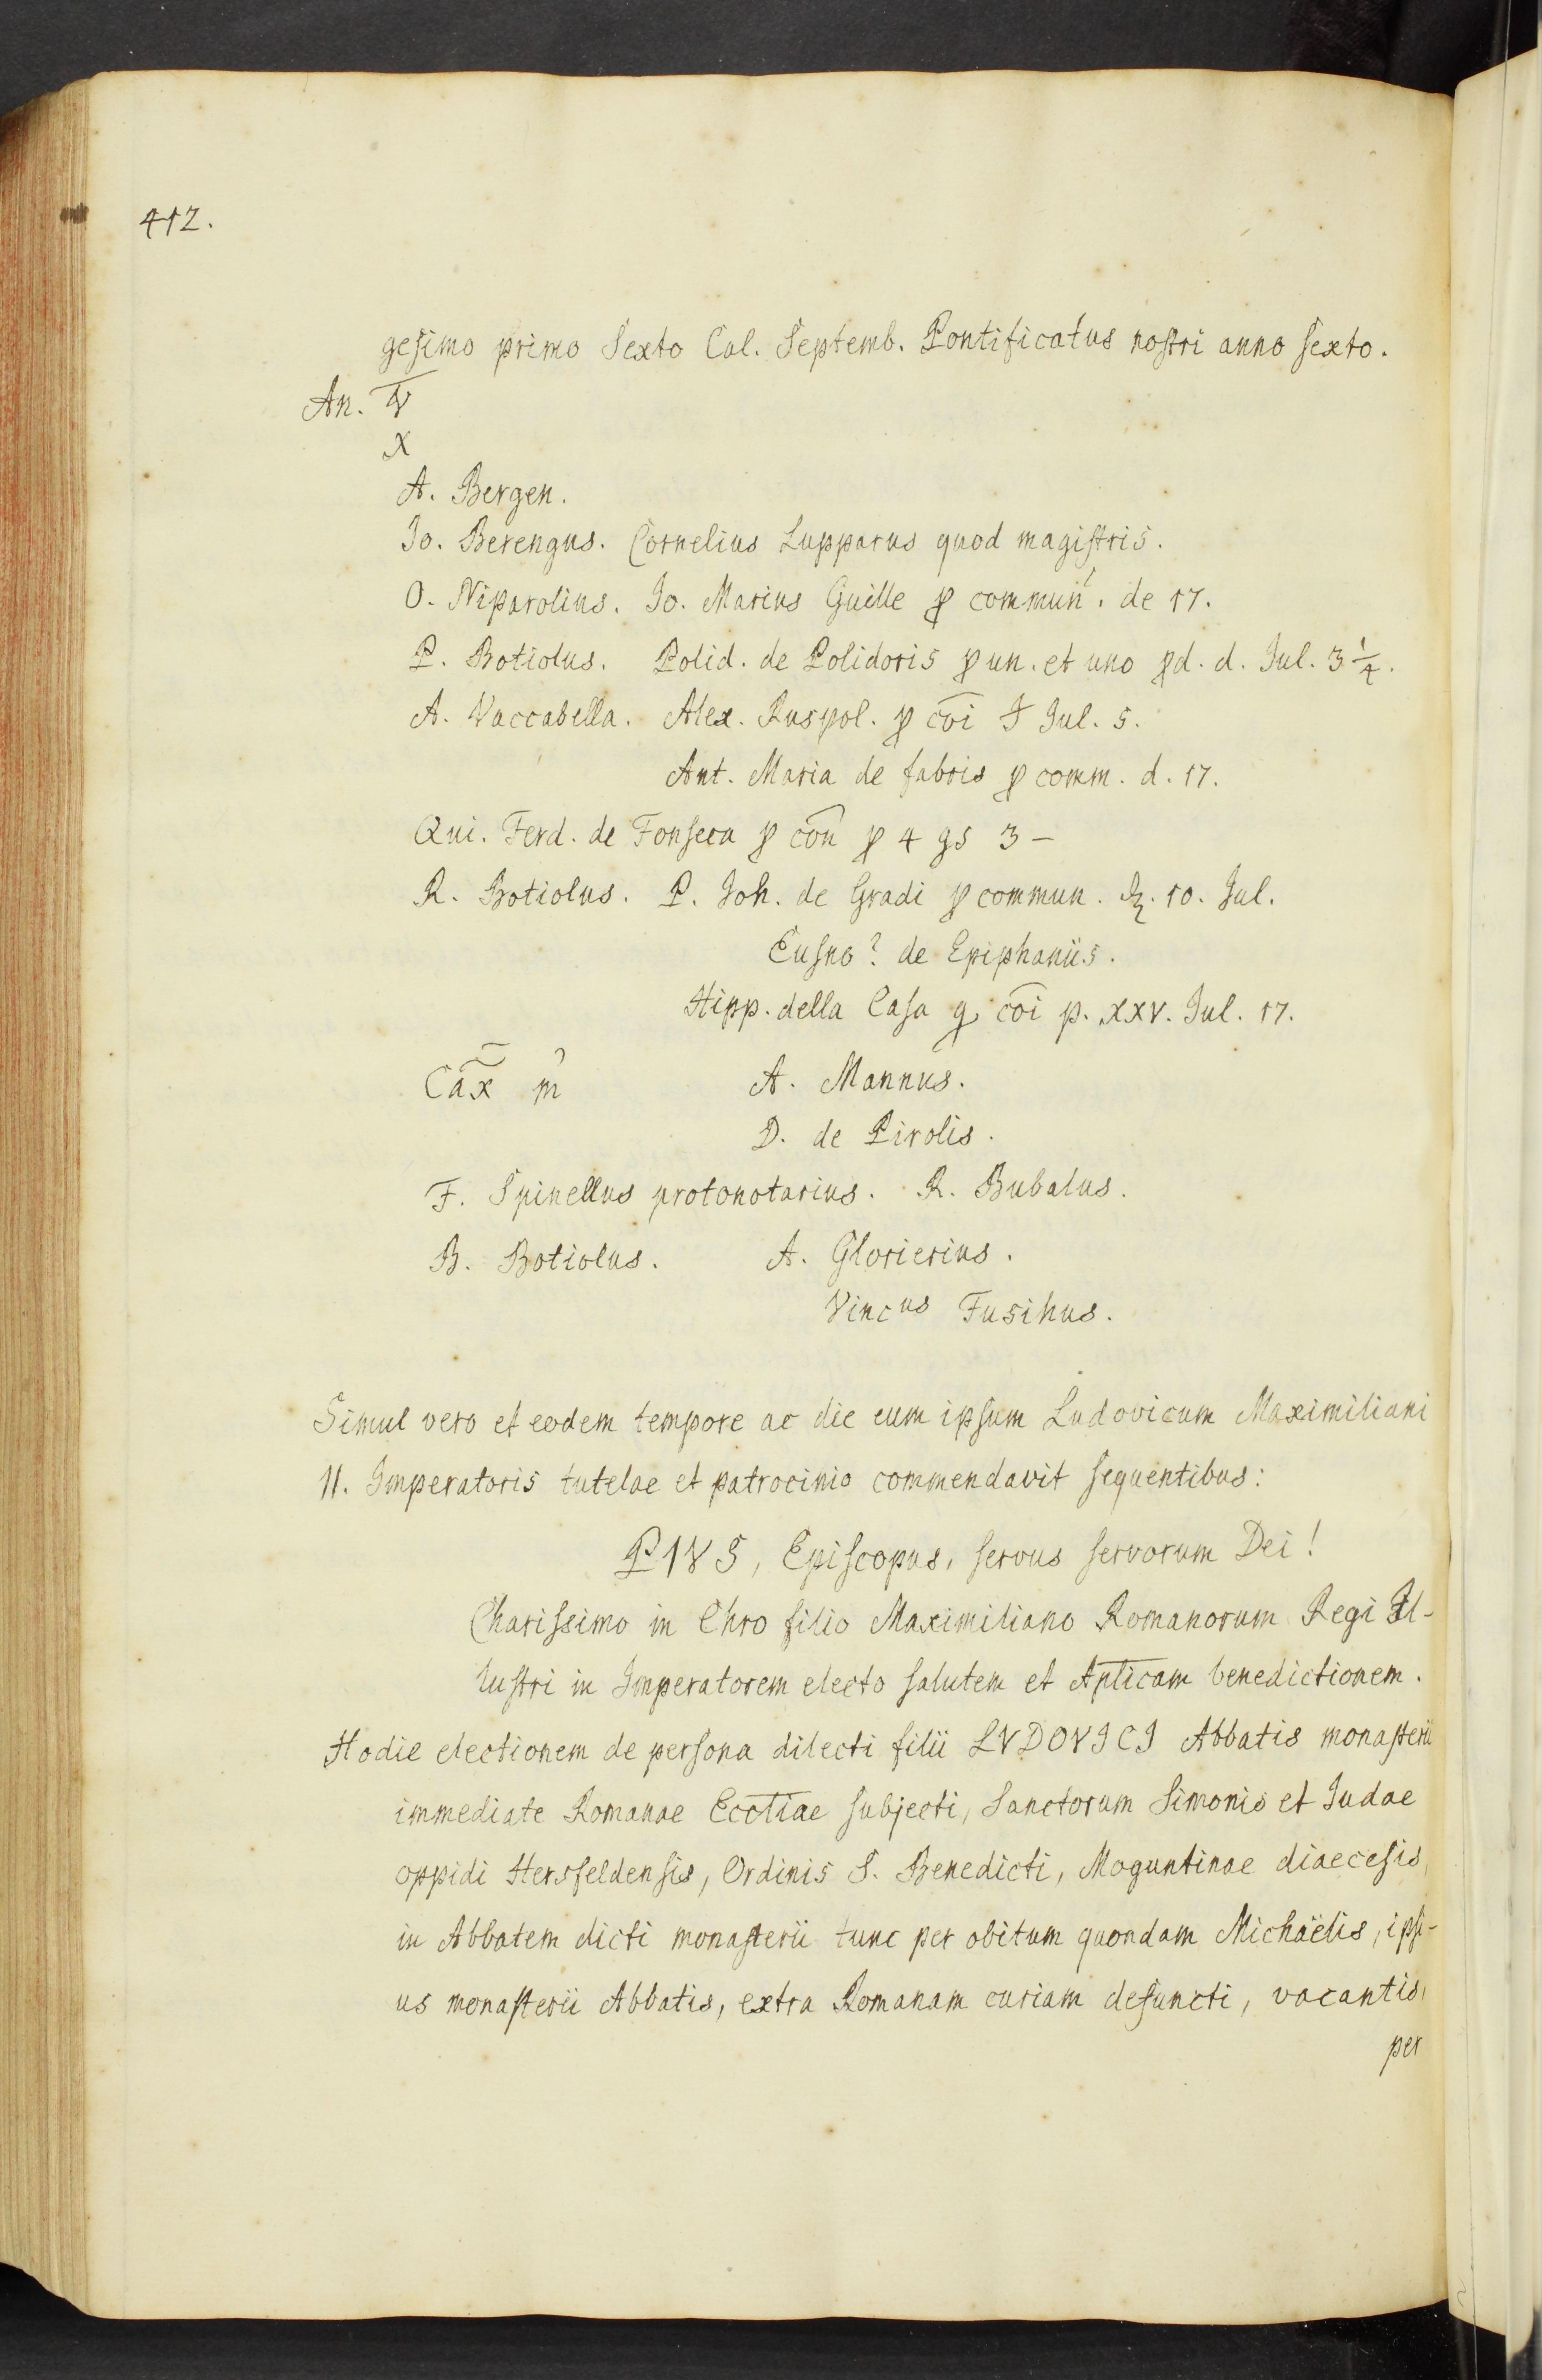 412.
gesimo primo Sexto Cal. Septemb. Pontificatus nostri anno sexto.
An. V
X
A. Bergen.
Jo. Berengus. Cornelius Lupparus quod magistris.
O. Niparolius. Jo. Marius Guille p commun. de 17.
P. Botiolus. Polid. de Polidoris p un. et uno pd. d. Jul. 3 1/4.
A. Vaccabella. Alex. Ruspol. p coi Jul. 5.
Ant. Maria de fabris p comm. d. 17.
Qui. Ferd. de Fonseca p con p 4 gs 3 –
R. Botiolus. P. Joh. de Gradi p commun. 10. Jul.
Eusno? de Epiphaniis.
Hipp. della Casa q coi p. XXV. Jul. 17.
Cax m A. Mannus.
D. de Pirolis.
F. Spinellus protonotarius. R. Bubalus.
B. Botiolus. A. Glorierius.
Vincus Fusihus.
Simul vero et eodem tempore ac die eum ipsum Ludovicum Maximiliani
II. Imperatoris tutelae et patrocinio commendavit sequentibus:
PIVS, Episcopus, servus servorum Dei!
Charissimo in Chro filio Maximiliano Romanorum Regi Il-
lustri in Imperatorem electo salutem et Aplicam benedictionem.
Hodie electionem de persona dilecti filii LVDOVICI Abbatis monasterii
immediate Romanae Ecctiae subjecti, Sanctorum Simonis et Judae
oppidi Hersfeldensis, Ordinis S. Benedicti, Moguntinae diaecesis,
in Abbatem dicti monasterii tunc per obitum quondam Michaëlis, ipsi-
us monasterii Abbatis, extra Romanam curiam defuncti, vacantis,
per